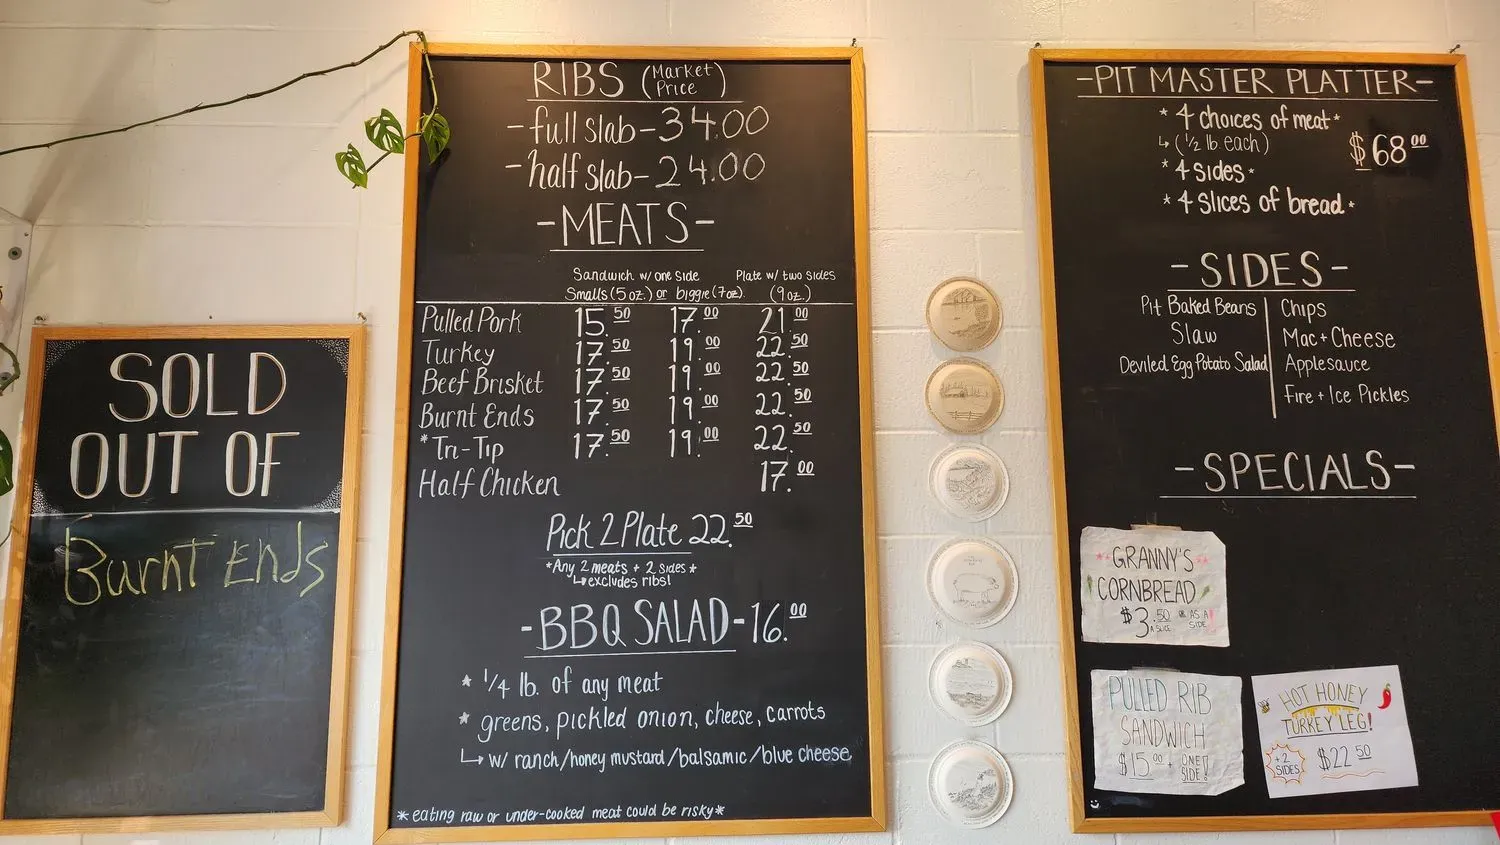 SOLD
OUT OF
Burnt Ends
RIBS (Market Price)
- full slab - 34.00
- half slab - 24.00
- MEATS -
Sandwich w/ one side Plate w/ two sides
Smalls (5 oz.) or biggie (7oz). (9 oz.)
Pulled Pork 15.50 17.00 21.00
Turkey 17.50 19.00 22.50
Beef Brisket 17.50 19.00 22.50
Burnt Ends 17.50 19.00 22.50
*Tri-Tip 17.50 19.00 22.50
Half Chicken 17.00
Pick 2 Plate 22.50
*Any 2 meats + 2 sides*
↳ excludes ribs!
- BBQ SALAD - 16.00
* 1/4 lb. of any meat
* greens, pickled onion, cheese, carrots
↳ w/ ranch/honey mustard/balsamic/blue cheese
*eating raw or under-cooked meat could be risky*
- PIT MASTER PLATTER -
* 4 choices of meat *
↳ (1/2 lb. each) $68.00
* 4 sides *
* 4 slices of bread *
- SIDES -
Pit Baked Beans
Slaw
Deviled Egg Potato Salad
Chips
Mac + Cheese
Applesauce
Fire + Ice Pickles
- SPECIALS -
GRANNY'S
CORNBREAD
$3.50 A SLICE OR AS A SIDE!
PULLED RIB
SANDWICH
$15.00 + ONE SIDE!
HOT HONEY
TURKEY LEG!
+2 SIDES $22.50